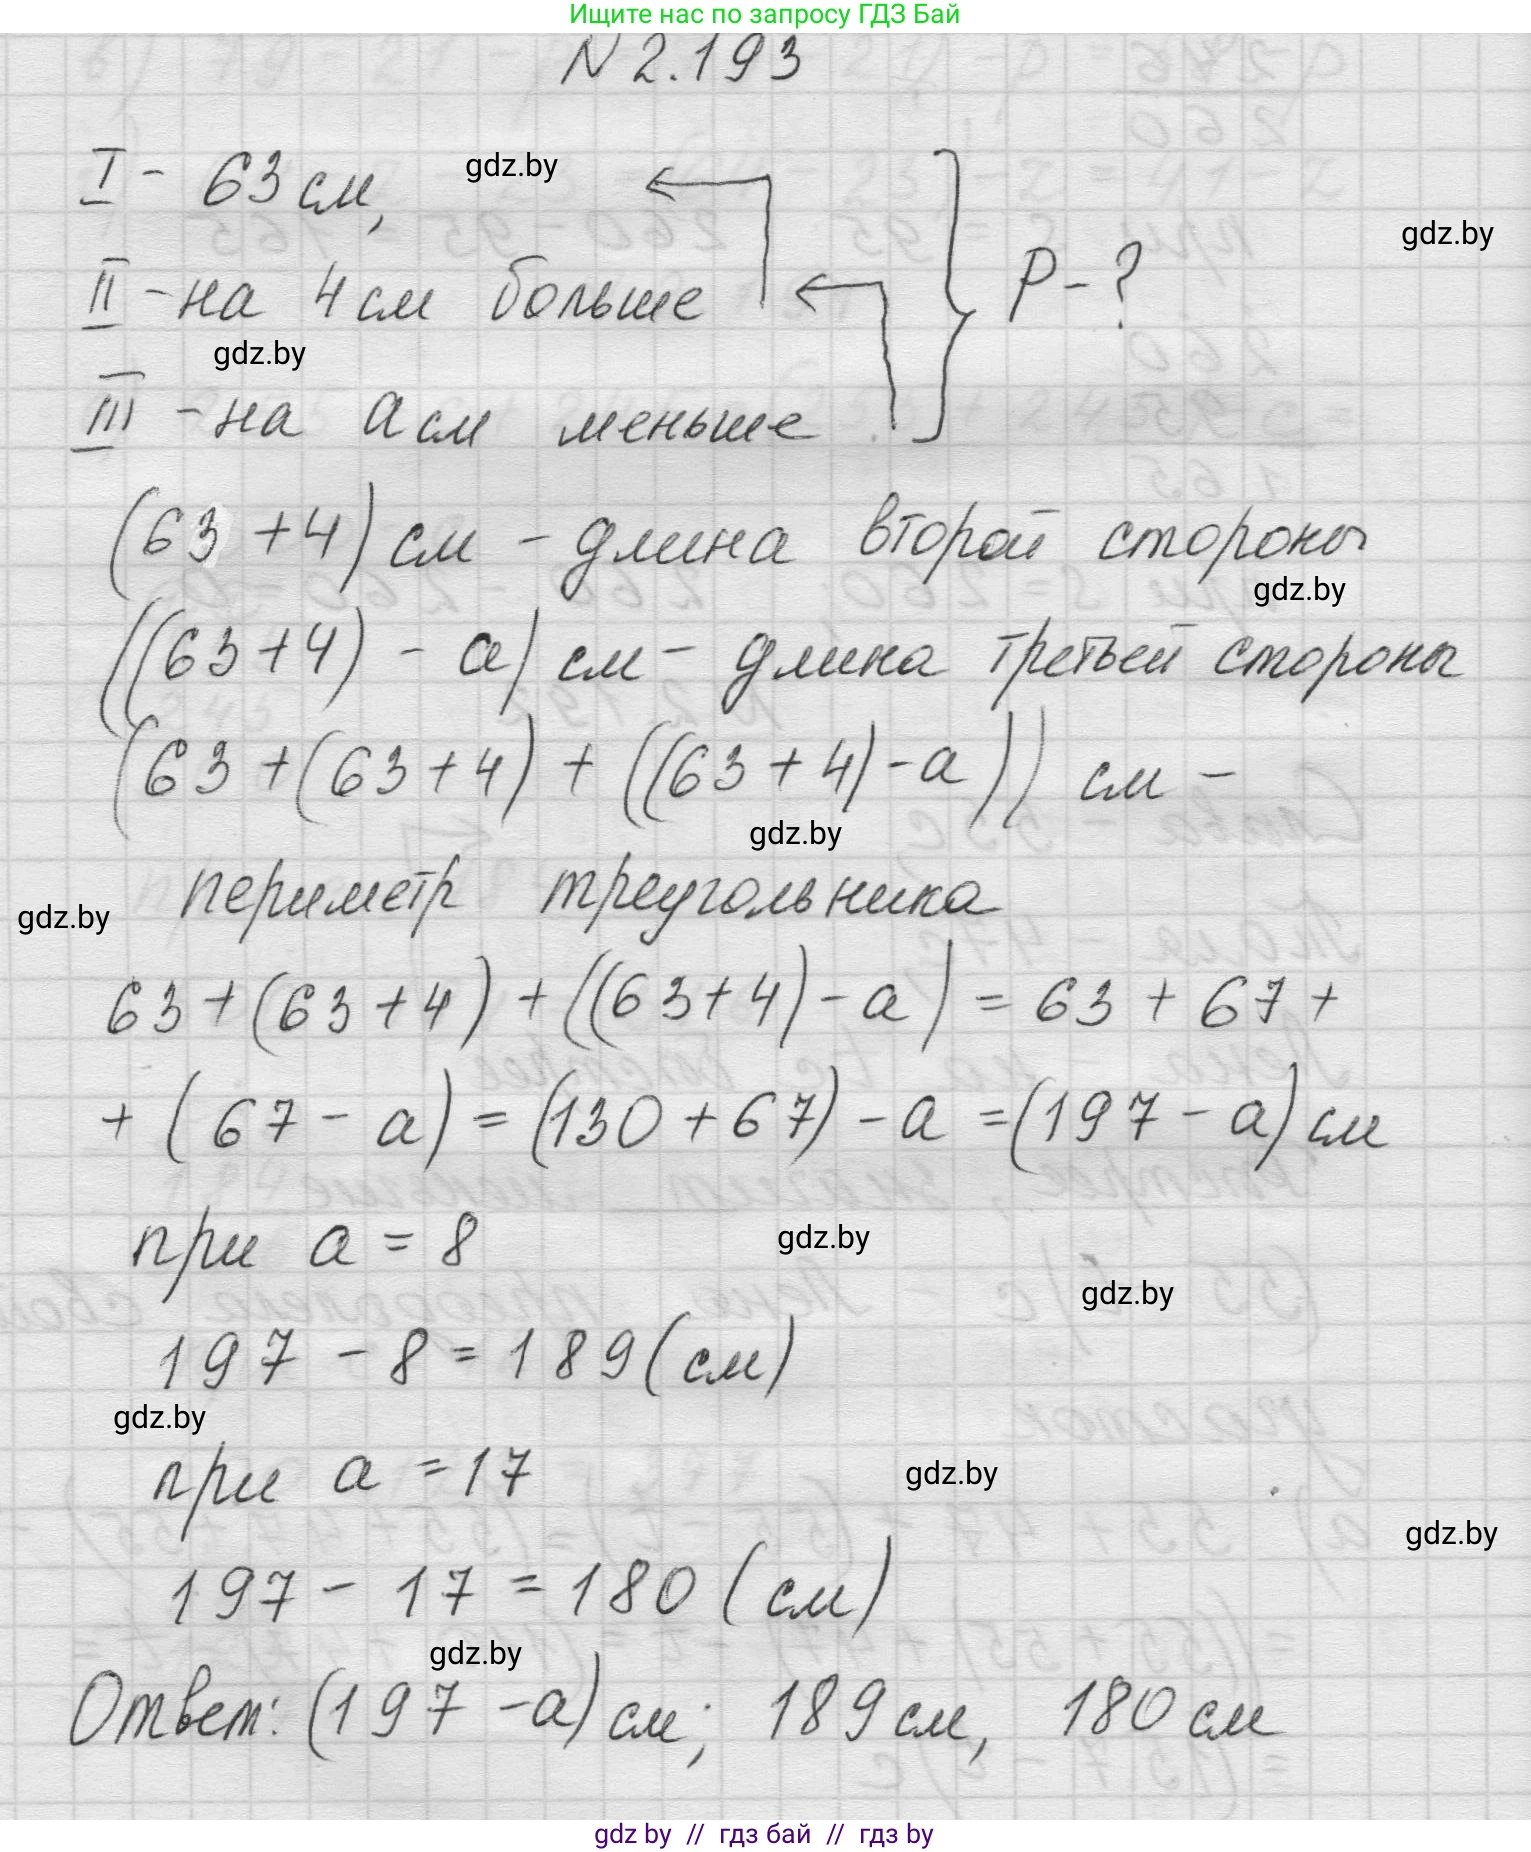 Ищите нас по запросу ГДЗ Бай
N 2.193
I - 63 см,
gdz.by
gdz.by
II - на 4 см больше
P - ?
gdz.by
III - на a см меньше
(63 + 4) см - длина второй стороны
gdz.by
((63 + 4) - a) см - длина третьей стороны
(63 + (63 + 4) + ((63 + 4) - a)) см -
gdz.by
периметр треугольника
gdz.by
63 + (63 + 4) + ((63 + 4) - a) = 63 + 67 +
+ (67 - a) = (130 + 67) - a = (197 - a) см
при a = 8
gdz.by
gdz.by
197 - 8 = 189 (см)
gdz.by
при a = 17
gdz.by
gdz.by
197 - 17 = 180 (см)
gdz.by
Ответ: (197 - a) см; 189 см, 180 см
gdz by // гдз бай // гдз by